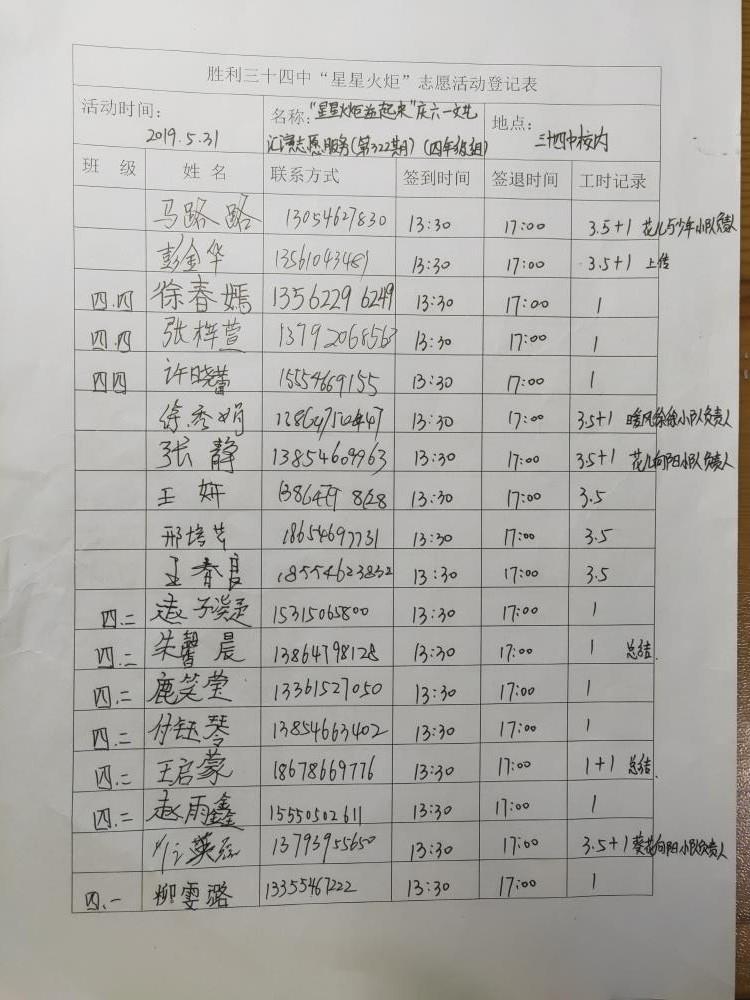 胜利三十四中“星星火炬”志愿活动登记表
活动时间： 2019.5.31 名称：“星星火炬益起来”庆六一文艺汇演志愿服务(第322期)(四年级组) 地点：三十四中校内
班 级 姓 名 联系方式 签到时间 签退时间 工时记录
马路路 13054627830 13:30 17:00 3.5+1 花儿与少年小队负责人
彭金华 13561043481 13:30 17:00 3.5+1 上传
四.四 徐春嫣 13562296249 13:30 17:00 1
四.四 张梓萱 13792068563 13:30 17:00 1
四四 许晓蕾 15554669155 13:30 17:00 1
徐秀娟 13:30 17:00 3.5+1 暖风徐徐小队负责人
张静 13854609963 13:30 17:00 3.5+1 花儿向阳小队负责人
王妍 13:30 17:00 3.5
邢培芳 18654697731 13:30 17:00 3.5
王春良 18554623832 13:30 17:00 3.5
四.二 赵子凝 15315065800 13:30 17:00 1
四.二 朱馨晨 13864798128 13:30 17:00 1 总结.
四.二 鹿笑莹 13361527050 13:30 17:00 1
四.二 付钰琴 13854663402 13:30 17:00 1
四.二 王启蒙 18678669776 13:30 17:00 1+1 总结.
四.二 赵雨鑫 15550502611 13:30 17:00 1
13793955650 13:30 17:00 3.5+1 葵花向阳小队负责人
四.一 柳雯璐 13355467222 13:30 17:00 1